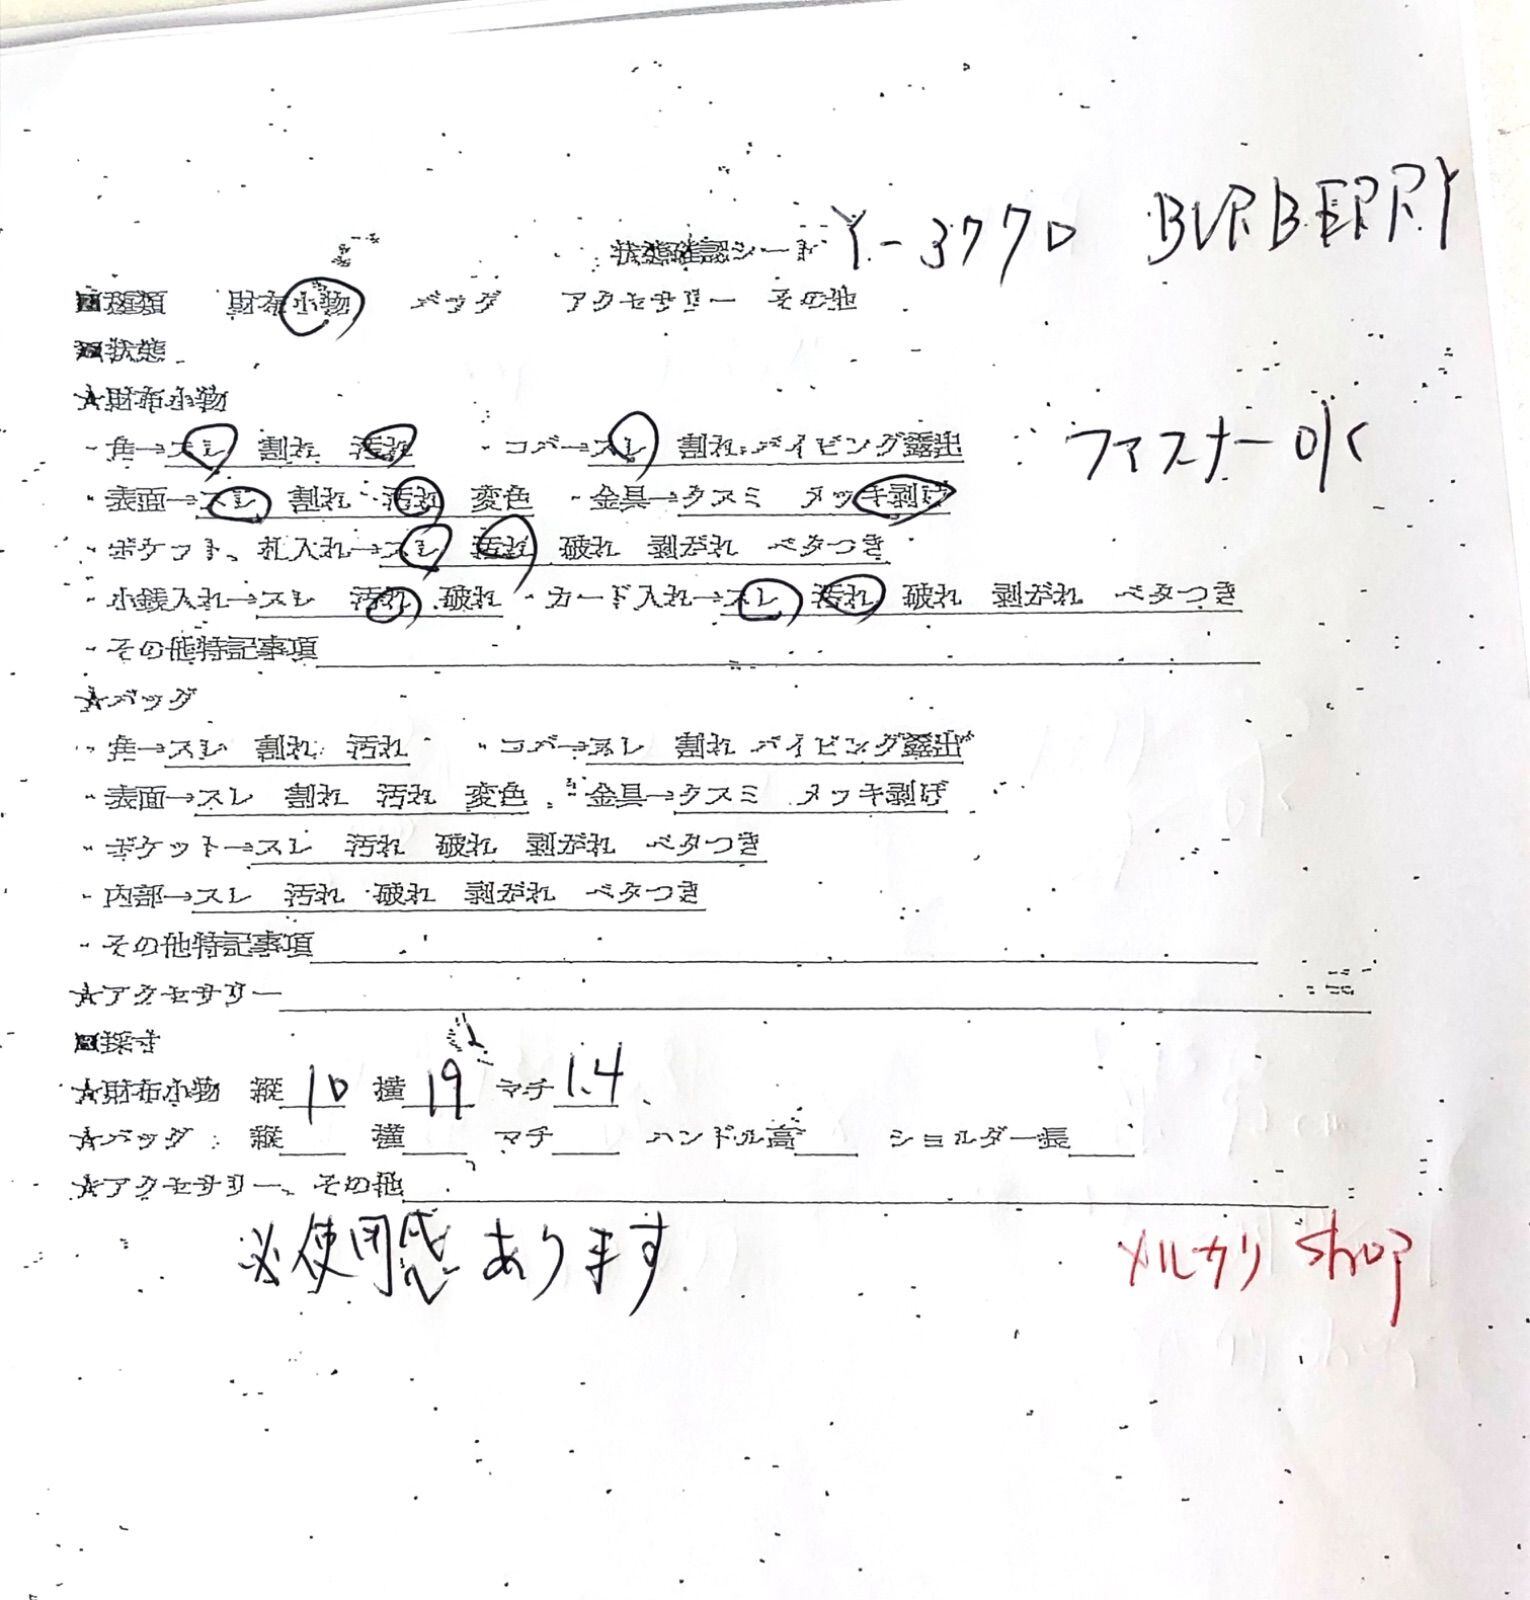 状態確認シート Y-3770 BURBERRY
■種類 財布小物 バッグ アクセサリー その他
■状態
★財布小物
・角→スレ 割れ 汚れ ・コバ→スレ 割れ パイピング露出 ファスナーOK
・表面→スレ 割れ 汚れ 変色 ・金具→クスミ メッキ剥げ
・ポケット、札入れ→スレ 汚れ 破れ 剥がれ ベタつき
・小銭入れ→スレ 汚れ 破れ ・カード入れ→スレ 汚れ 破れ 剥がれ ベタつき
・その他特記事項
★バッグ
・角→スレ 割れ 汚れ ・コバ→スレ 割れ パイピング露出
・表面→スレ 割れ 汚れ 変色 ・金具→クスミ メッキ剥げ
・ポケット→スレ 汚れ 破れ 剥がれ ベタつき
・内部→スレ 汚れ 破れ 剥がれ ベタつき
・その他特記事項
★アクセサリー
■採寸
★財布小物 縦 10 横 19 マチ 1.4
★バッグ 縦 横 マチ ハンドル高 ショルダー長
★アクセサリー、その他
※使用感あります メルカリ shop